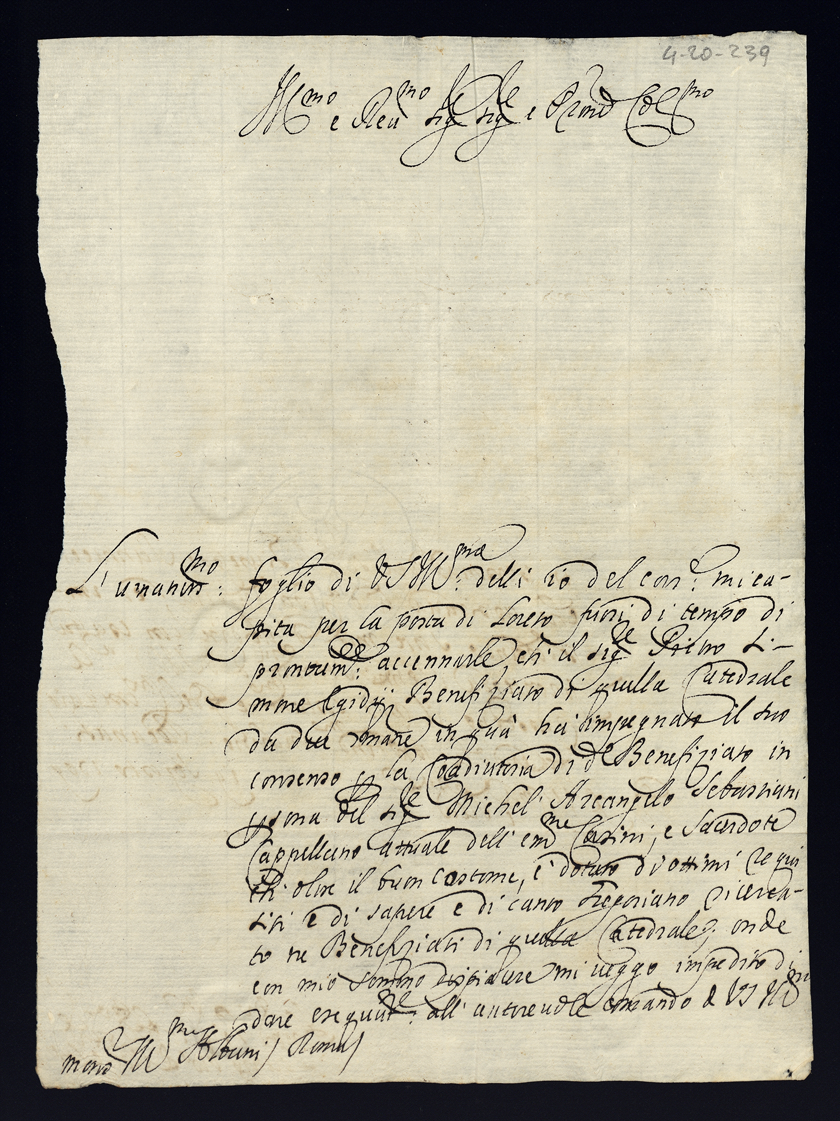 4-20-239
Ill.mo e Reu.mo Sig.re Sig.re e Pron Col.mo
L'umaniss.mo: foglio di VS Ill.ma: delli 10 del corr.e mi ca-
pita per la posta di Loreto fuori di tempo di
prontam.te accennarle, ch il sig.re Pietro Si-
mme Egidij Benefiziato di quella Catedrale
da due in quà ha impegnato il suo
consenso p la Coadiutoria di d.o Benefiziato in
psona del sig.re Michel' Arcangelo Sebastiani
Cappellano attuale dell' em.mo Casini, e Sacerdote
chi oltre il buon costome, è dotato di ottimi requi
siti e di sapere e di canto Gregoriano ricerca-
to ne Benefiziati di quella Catedrale; onde
con mio sommo dispiacere mi veggo impedito di
dare esequut.ne: all' autoreuole comando di VS Ill.ma
mons.r Ill.mo Albani / Roma /